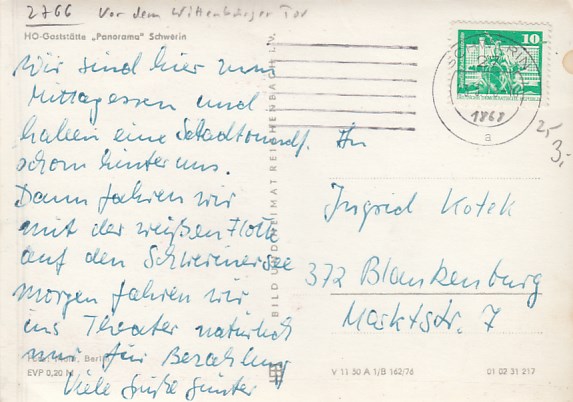 2766 Vor dem Wittenburger Tor
HO-Gaststätte „Panorama" Schwerin
Wir sind hier zum
Mittagessen und
haben eine Stadtrundf.
schon hinter uns.
Dann fahren wir
mit der weißen Flotte
auf den Schweriner See
morgen fahren wir
ins Theater natürlich
nur für Bezahlung
Viele Grüße Günter
EVP 0,20 M
BILD UND HEIMAT REICHENBACH I. V.
V 11 50 A 1/B 162/76
01 02 31 217
10
SCHWERIN
1868
a
2,-
3,-
An
Ingrid Kotek
372 Blankenburg
Marktstr. 7